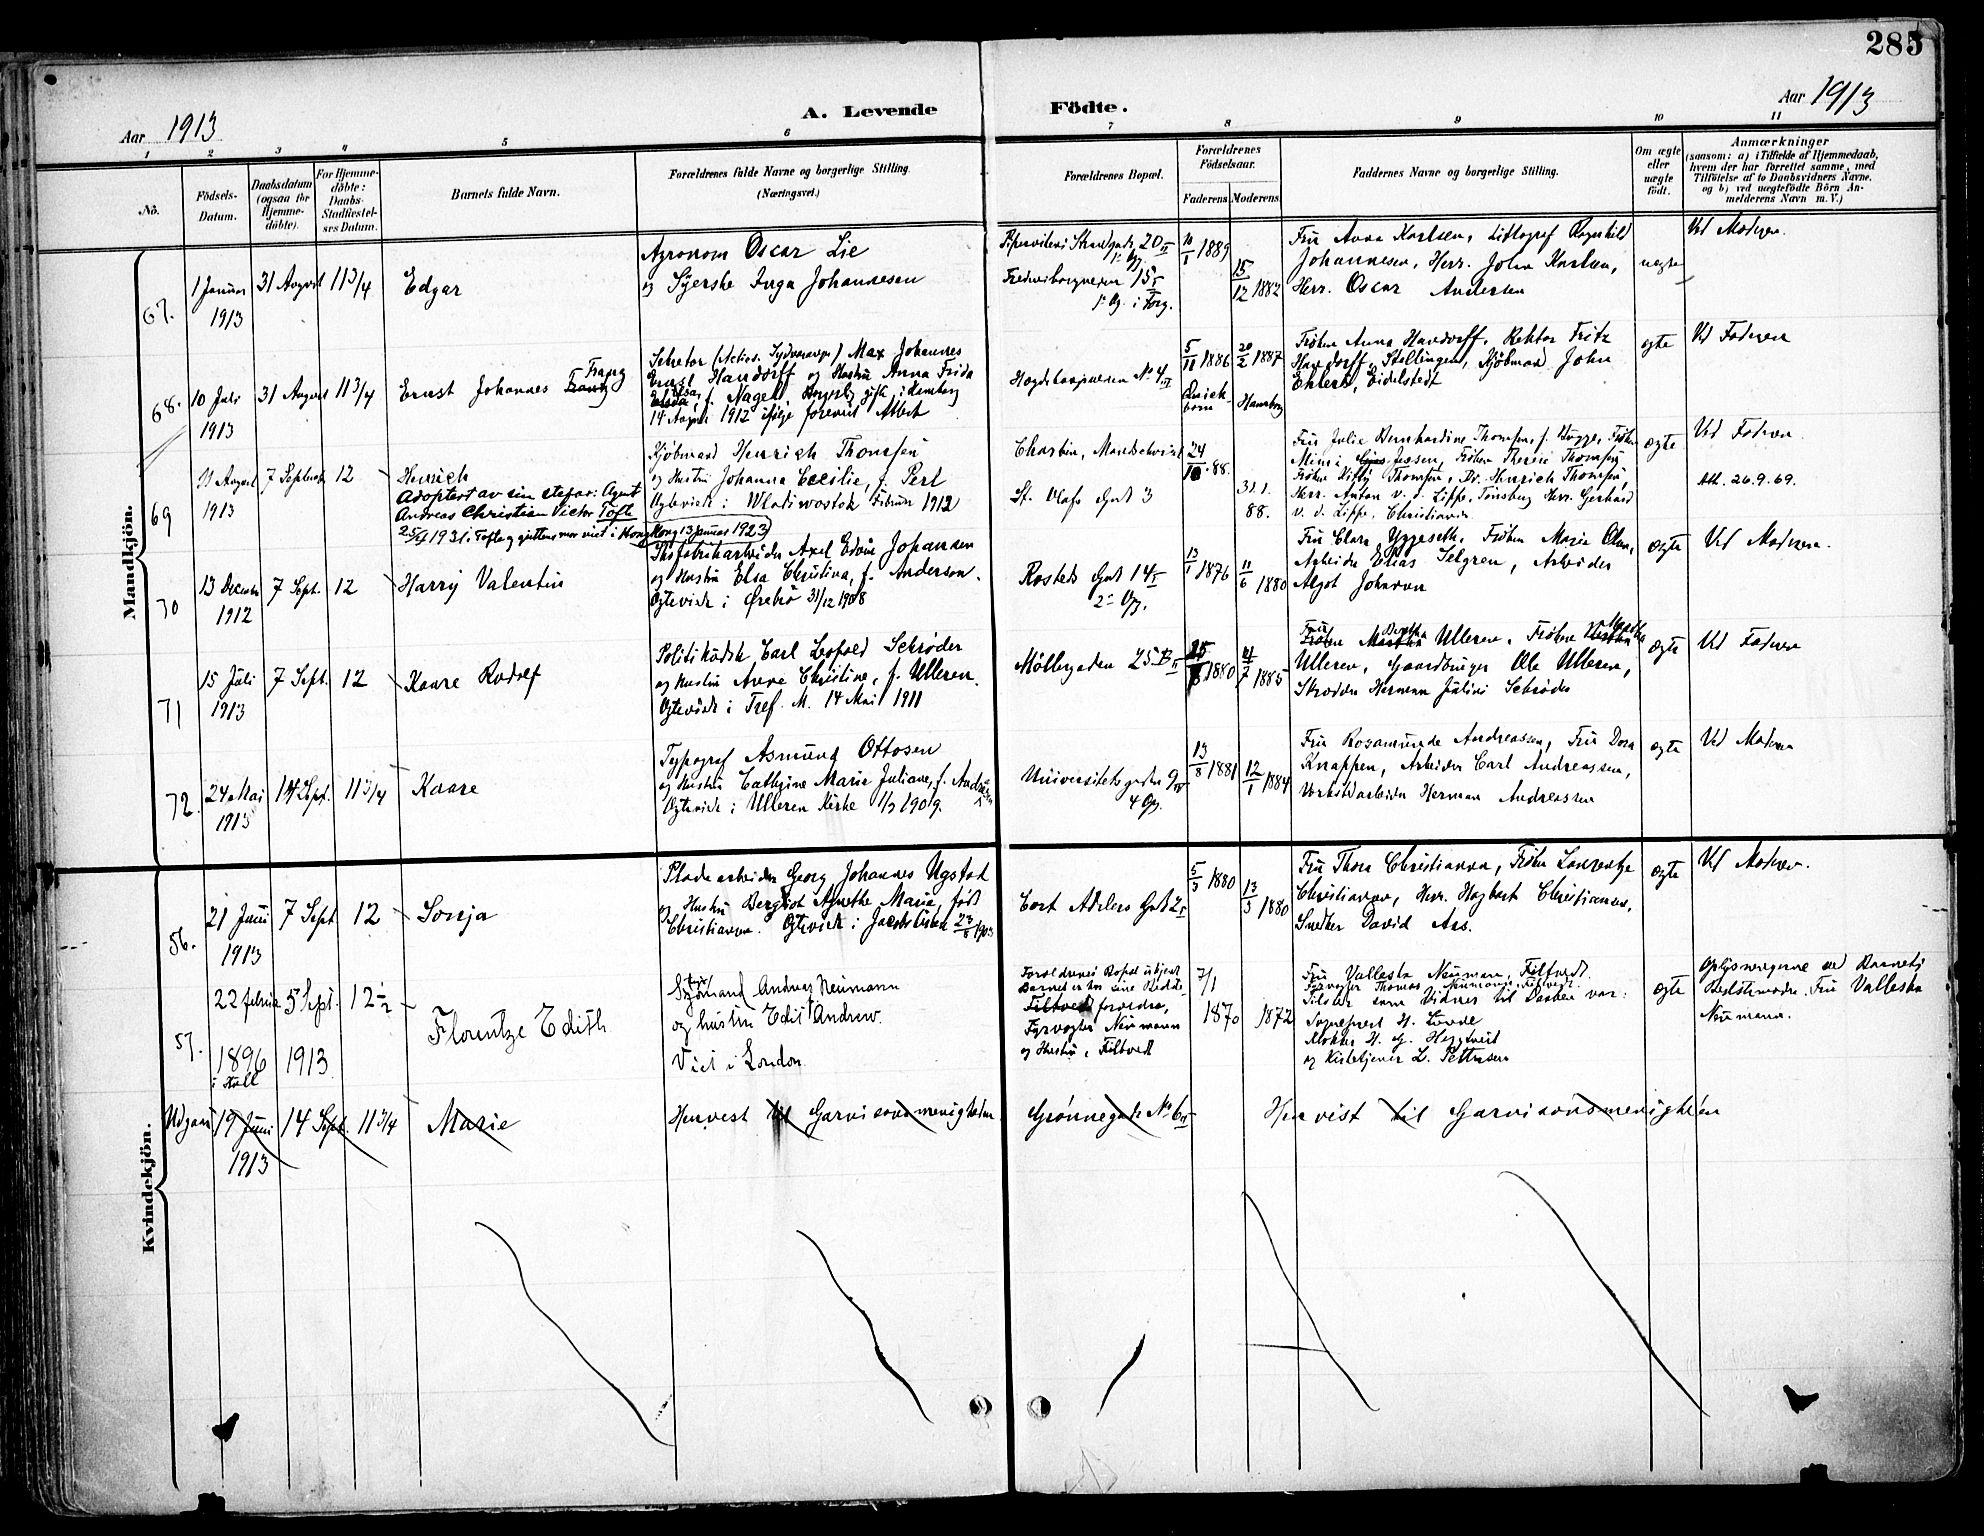 285
Aar 1913
A. Levende Födte.
Aar 1913
1 2 3 4 5 6 7 8 9 10 11
No.
Födsels-Datum.
Daabsdatum (ogsaa för Hjemme-döbte).
For Hjemme-döbte: Daabs-Stadfæstel-ses Datum.
Barnets fulde Navn.
Forældrenes fulde Navne og borgerlige Stilling.
(Næringsvei.)
Forældrenes Bopæl.
Forældrenes Födselsaar.
Faderens Moderens
Faddernes Navne og borgerlige Stilling.
Om ægte eller uægte födt.
Anmærkninger
(saasom: a) i Tilfælde af Hjemmedaab, hvem der har forrettet samme, med Tilföielse af to Daabsvidners Navne, og b) ved uægtefödte Börn Anmelderens Navn m. V.)
Mandkjön.
67.
1 Januar 1913
31 August
11 3/4
Edgar
Agronom Oscar Lie
og Syerske Inga Johannesen
20 II
15 I
1 Og. i Forg.
1889
15/12 1882
Fru Anna Karlsen, Littograf Ragnhild
Johannesen, Herr. John Karlsen,
Herr. Oscar Andersen
uægte
Ved Moderen.
68.
10 Juli 1913
31 August
11 3/4
Ernst Johannes Franz
Max Johannes
Ernst Handorff og Hustru Anna Frida
f. Nagel. Borgerlig gift i Hamborg
14 August 1912
No 4 III
5/11 1886
20/2 1887
Hamborg
Frøken Anna Handorff, Rektor Fritz
Handorff, Stellingen, Kjøbmand John
Ehlers, Eidelstedt
ægte
Ved Faderen
69
11 August 1913
7 September
12
Henrich
Adoptert av sin stefar: Agent
Andreas Christian Victor Toft
25/4 1931. Toft og guttens mor viet i Hong Kong 13 januar 1923
Kjøbmand Henrich Thomsen
og Hustru Johanna Cecilie, f. Perl
Ægteviede i Wladiwostok Februar 1912
Charbin, Mandschuriet
St. Olafs Gade 3
24/10 88.
31.1. 88.
Fru Julie Bernhardine Thomsen, f. Bugge, Frøken
Mimi Jessen, Frøken Therese Thomsen,
Frøken Kitty Thomsen, Dr. Henrich Thomsen,
Herr. Anton v. d. Lippe, Tønsberg Herr. Gerhard
v. d. Lippe, Christiania
ægte
Ved Faderen.
Att. 26.9.69.
70
13 December 1912
7 Sept.
12
Harry Valentin
Skofabrikarbeider Axel Edvin Johansen
og Hustru Elsa Christina, f. Anderson.
Ægteviede i Ørebro 31/12 1908
Rosteds Gade 14 I
2 Og.
13/1 1876
11/6 1880
Fru Clara Yggeseth, Frøken Marie Olsen,
Arbeider Elias Selgren, Arbeider
Algot Johnson
ægte
Ved Moderen.
71
15 Juli 1913
7 Sept.
12
Kaare Rudolf
Politikonst. Carl Leopold Schrøder
og Hustru Anna Christine, f. Ulleren.
Ægteviede i Tref. M. 14 Mai 1911
Møllergaden 25 B II
1880
1885
Fru Berthe Ulleren, Frøken Martha
Ulleren, Gaardbruger Ole Ulleren,
Skrædder Herman Julius Schrøder
ægte
Ved Faderen
72.
24 Mai 1913
14 Sept.
11 3/4
Kaare
Typograf Asmund Ottosen
og Hustru Cathrine Marie Juliane, f. Andreassen
Ægteviede i Ulleren Kirke 1/3 1909.
Universitetsgaden 9 IV
4 Og.
13/8 1881
12/1 1884
Fru Rosamunde Andreassen, Fru Dora
Knappen, Arbeider Carl Andreassen,
Verkstedarbeider Herman Andreassen
ægte
Ved Moderen
Kvindekjön.
56.
21 Juni 1913
7 Sept
12
Sonja
Pladearbeider Georg Johannes Ugstad
og Hustru Bergliot Agnethe Maria, født
Christiansen. Ægteviede i Jacobskirken 23/8 1903
Cort Adelers Gade 2 I
5/3 1880
13/3 1880
Fru Thora Christiansen, Frøken Laurentze
Christiansen, Herr. Hagbart Christiansen,
Snedker David Aas.
ægte
Ved Moderen.
57.
22 februar 1896
i Hull
5 Sept. 1913
12 1/2
Florentze Edith
Sjømand Andreas Neumann
og hustru Edit Andrew.
Viet i London
Forældrenes Bopæl ukjent
Barnet er hos sine Bedste-
forældre,
Fyrvogter Neumann
og Hustru, Filtvedt
7/1 1870
1872
Fru Valleska Neumann, Filtvedt.
Fyrvogter Thomas Neumann, Filtvedt.
Tilstede som Vidner til Daaben var:
Sogneprest H. Lunde
Klokker H. G. Heggtveit
og Kirketjener L. Pettersen
ægte
Oplysningerne ved Barnets
Bedstemoder Fru Valleska
Neumann.
Udgaar
19 Juni 1913
14 Sept.
11 3/4
Marie
Henvist til Garnisonsmenigheden.
Grønnegade No 6 II
Henvist til Garnisonsmenigheden